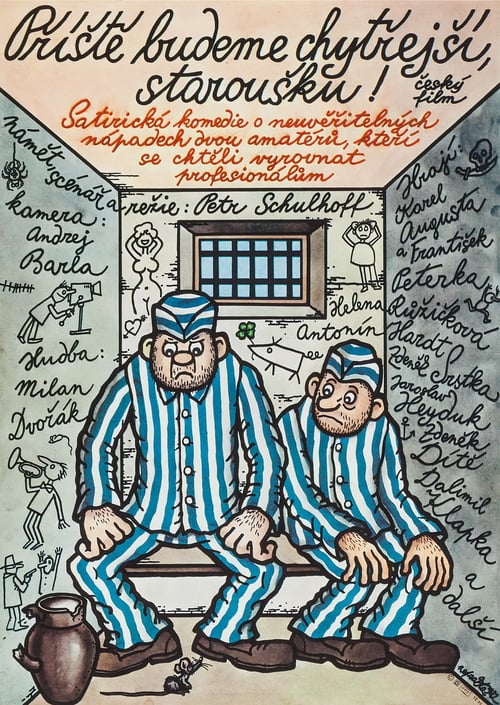 Příště budeme chytřejší,
staroušku!
český
film
Satirická komedie o neuvěřitelných
nápadech dvou amatérů, kteří
se chtěli vyrovnat
profesionálům
námět, scénář a
režie: Petr Schulhoff
kamera:
Andrej
Barla
Hudba:
Milan
Dvořák
Hrají:
Karel
Augusta
a František
Peterka
Helena
Růžičková
Antonín
Hardt
Zdeněk
Srstka
Jaroslav
Heyduk
Zdeněk
Dítě
Dalimil
Klapka
a
další